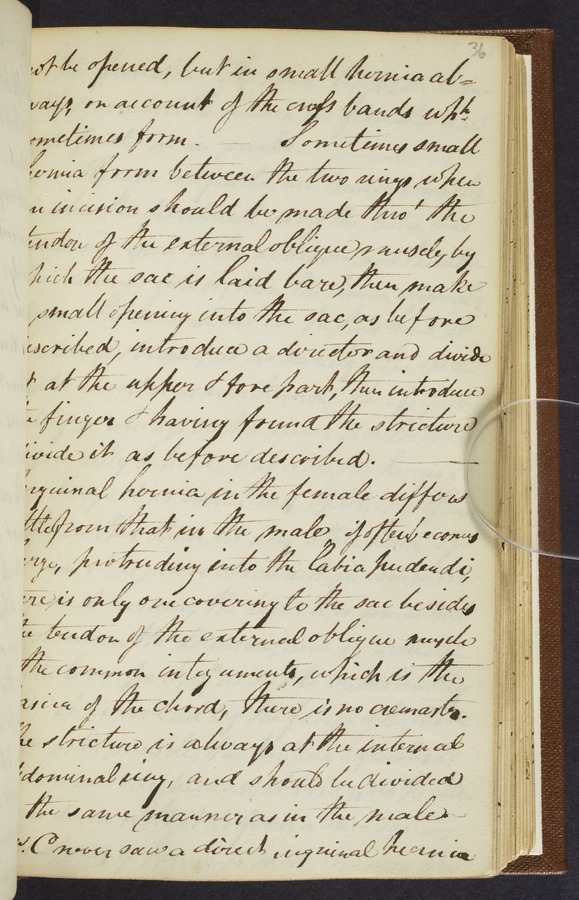 36
not be opened, but in small hernia al=
ways, on account of the cross bands whh
sometimes form. — Sometimes small
hernia form between the two rings when
an incision should be made thro' the
tendon of the external oblique muscle, by
which the sac is laid bare, then make
small opening into the sac, as before
escribed, introduce a director and divide
at the upper & fore part, then introduce
finger & having found the stricture
ivide it as before described. —
nguinal hernia in the female differs
ttle from that in the male, it often becomes
arge, protruding into the Labia pudendi,
ere is only one covering to the sac besides
e tendon of the external oblique muscle
the common integuments, which is the
ascia of the chord, there is no cremaster.
he stricture is always at the internal
bdominal ring, and should be divided
the same manner as in the male
r. C never saw a direct inguinal hernia